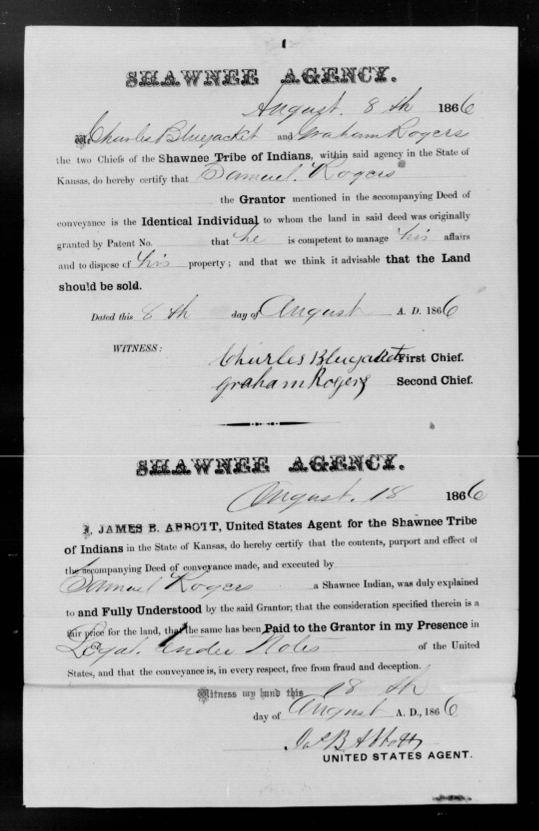 SHAWNEE AGENCY.
August. 8th 1866
We Charles Bluejacket and Graham Rogers
the two Chiefs of the Shawnee Tribe of Indians, within said agency in the State of
Kansas, do hereby certify that Samuel. Rogers
the Grantor mentioned in the accompanying Deed of
conveyance is the Identical Individual to whom the land in said deed was originally
granted by Patent No. that he is competent to manage his affairs
and to dispose of his property; and that we think it advisable that the Land
should be sold.
Dated this 8th day of August A. D. 1866
WITNESS:
Charles Bluejacket First Chief.
Graham Rogers Second Chief.
SHAWNEE AGENCY.
August. 18 1866
I, JAMES B. ABBOTT, United States Agent for the Shawnee Tribe
of Indians in the State of Kansas, do hereby certify that the contents, purport and effect of
the accompanying Deed of conveyance made, and executed by
Samuel Rogers a Shawnee Indian, was duly explained
to and Fully Understood by the said Grantor; that the consideration specified therein is a
fair price for the land, that the same has been Paid to the Grantor in my Presence in
Legal Tender Notes of the United
States, and that the conveyance is, in every respect, free from fraud and deception.
Witness my hand this 18th
day of August A. D., 1866
Jas B. Abbott
UNITED STATES AGENT.